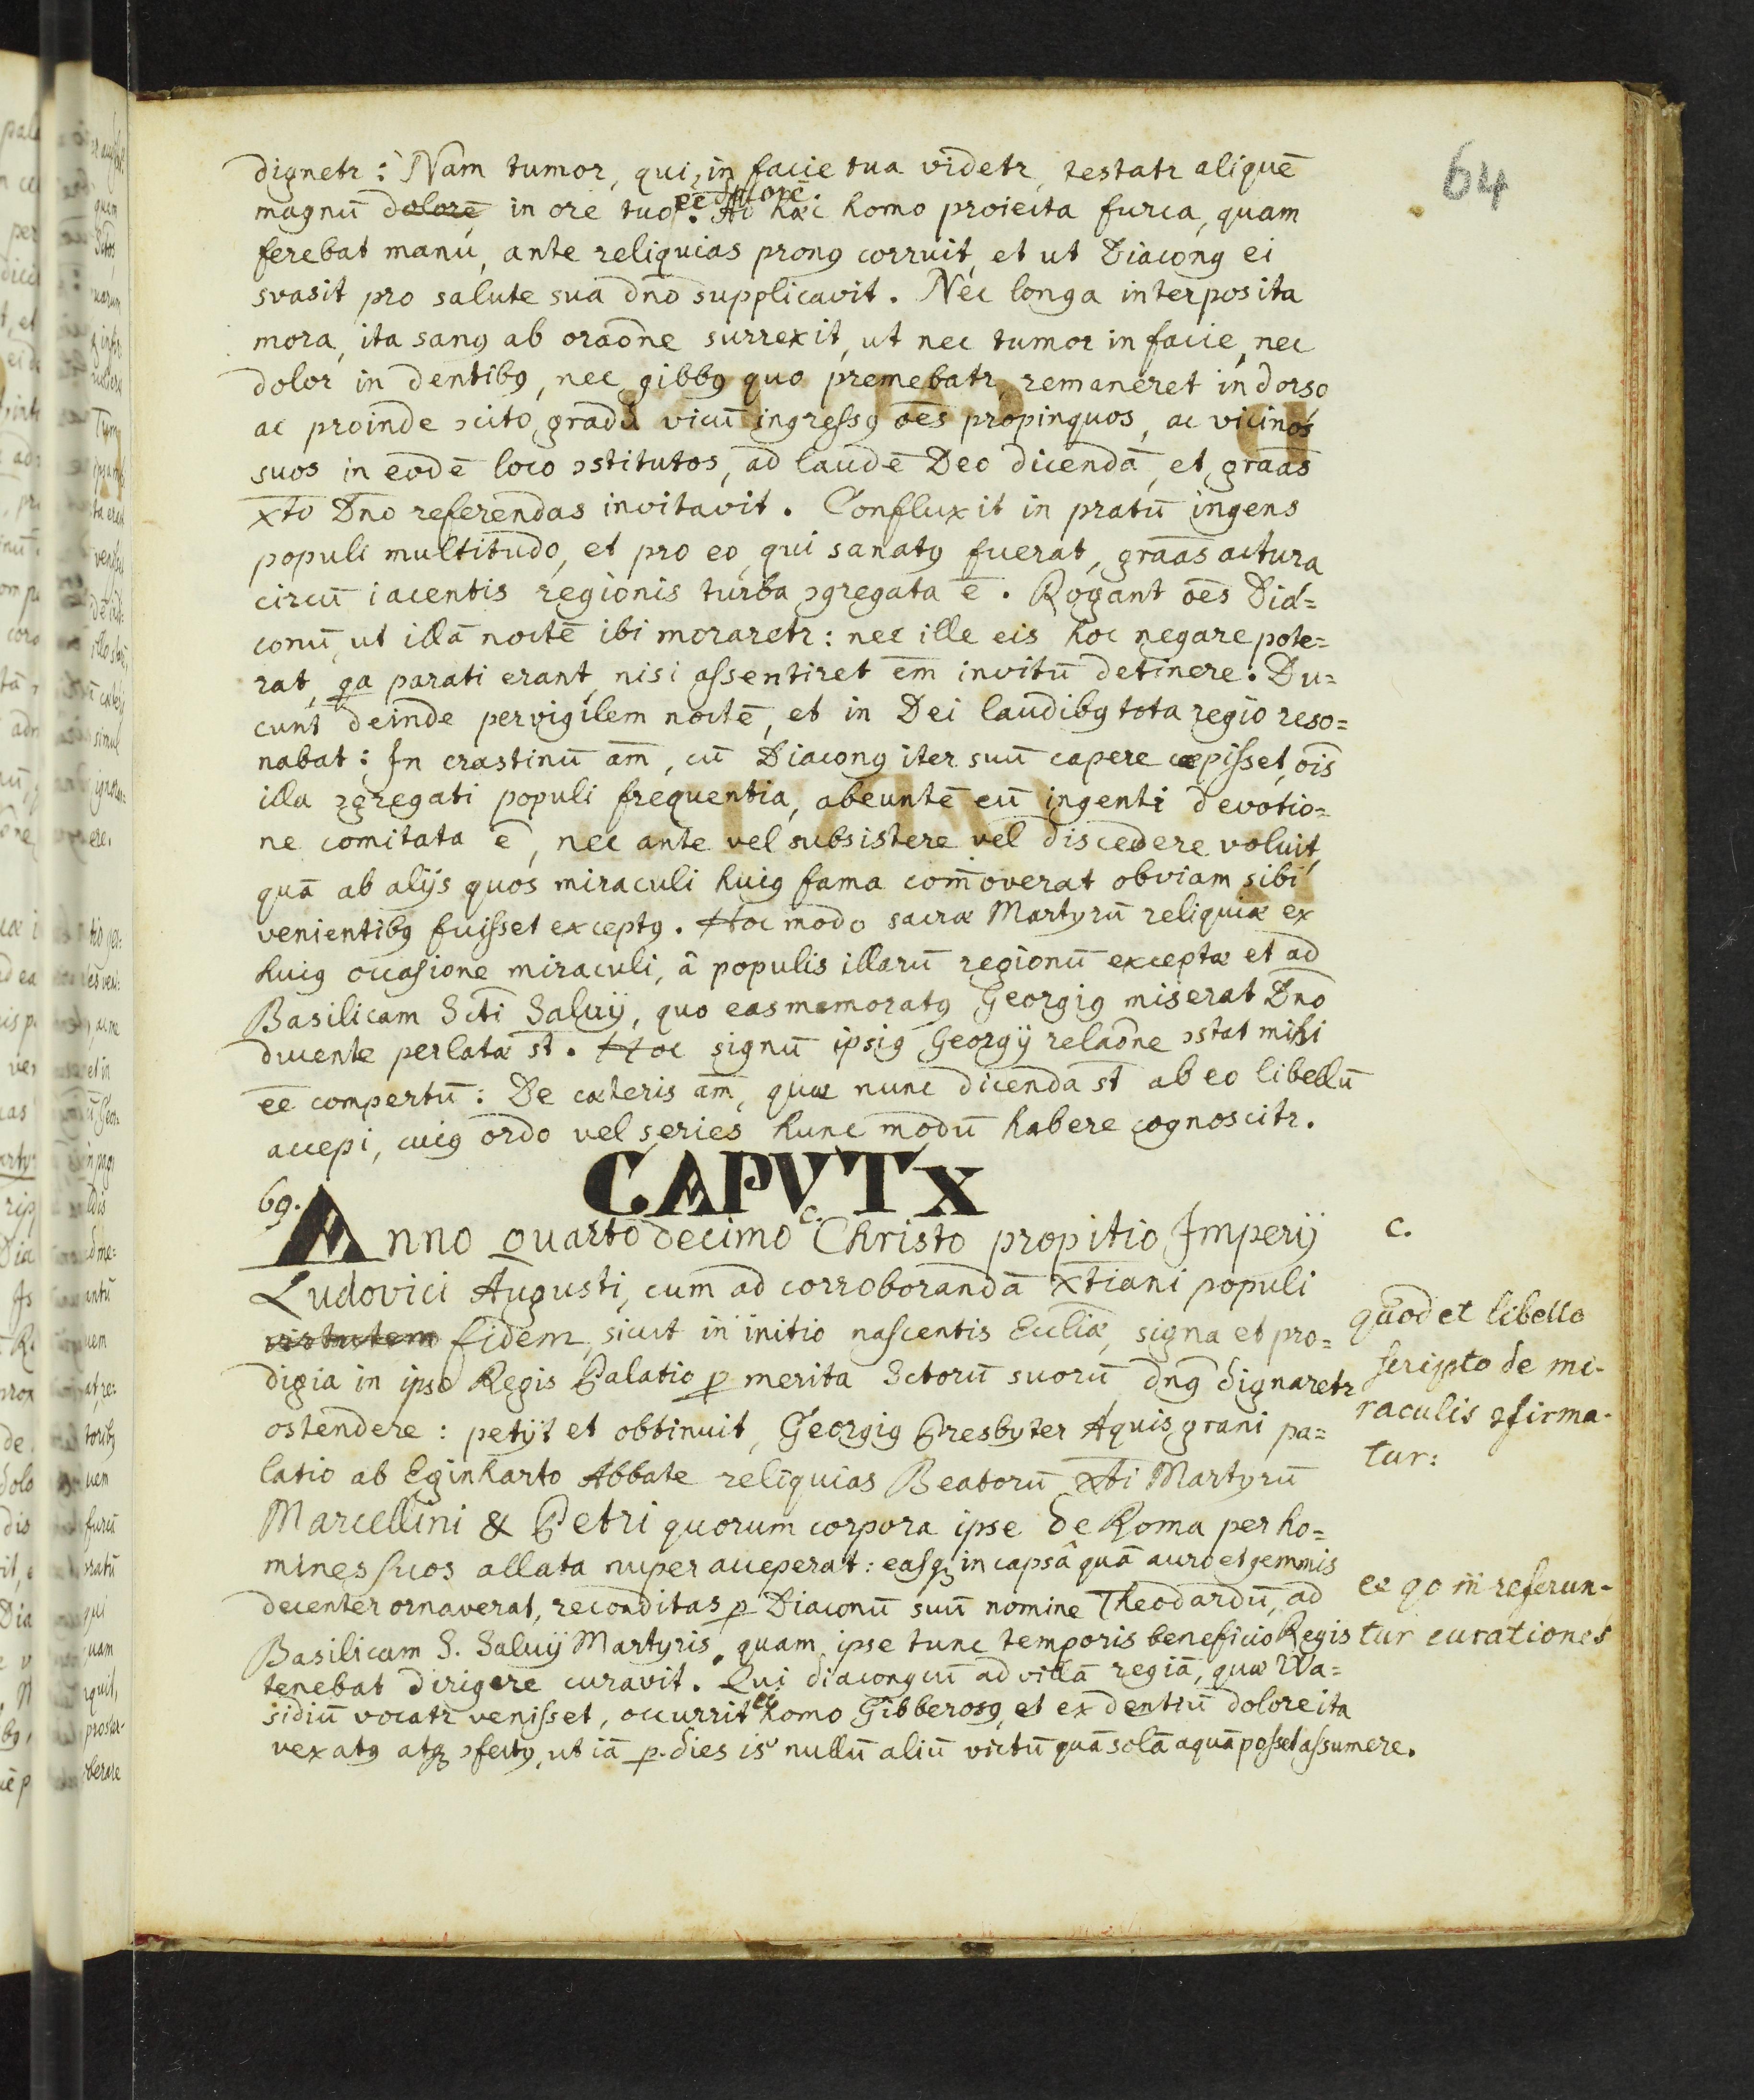 64
dignetr: Nam tumor, qui in facie tua videtr, testatr aliquē
magnū dolorē in ore tuo ēe dolorē. Ad hæc homo proiecta furca, quam
ferebat manu, ante reliquias pronꝯ corruit, et ut Diaconꝯ ei
svasit pro salute sua dn̄o supplicavit. Nec longa interposita
mora, ita sanꝯ ab orāone surrexit, ut nec tumor in facie, nec
dolor in dentibꝯ, nec gibbꝯ quo premebatr, remaneret in dorso
ac proinde ↄcito gradu vicū ingressꝯ ōes propinquos, ac vicinos
suos in eodē loco ↄstitutos, ad laudē Deo dicendā, et grāas
x̄to Dn̄o referendas invitavit. Confluxit in pratū ingens
populi multitudo, et pro eo, qui sanatꝯ fuerat, grāas actura
circū iacentis regionis turba ↄgregata ē. Rogant ōes Dia=
conū, ut illā noctē ibi moraretr: nec ille eis hoc negare pote=
rat, qa parati erant, nisi assentiret ēm invitū detinere. Du=
cunt deinde pervigilem noctē, et in Dei laudibꝯ tota regio reso=
nabat: In crastinū ām, cū Diaconꝯ iter suū capere cœpisset, ōis
illa ↄgregati populi frequentia, abeuntē eū ingenti devotio=
ne comitata ē, nec ante vel subsistere vel discedere voluit,
quā ab alijs quos miraculi huiꝯ fama com̄overat obviam sibi
venientibꝯ fuisset exceptꝯ. Hoc modo sacræ Martyrū reliquiæ ex
huiꝯ occasione miraculi, â populis illarū regionū exceptæ et ad
Basilicam Scti Salvij, quo eas memoratꝯ Georgiꝯ miserat Dn̄o
ducente perlatæ st̄. Hoc signū ipsiꝯ Georgij relāone ↄstat mihi
ēe compertū: De cæteris ām, quæ nunc dicenda st̄ ab eo libellū
accepi, cuiꝯ ordo vel series hunc modū habere cognoscitr.
CAPVT X
69. Anno quarto decimo c. Christo propitio Imperij
Ludovici Augusti, cum ad corroborandā x̄tiani populi
virtutem fidem, sicut in initio nascentis Eccliæ, signa et pro=
digia in ipso Regis Palatio ꝑ merita Sctorū suorū dn̄ꝯ dignaretr
ostendere: petijt et obtinuit, Georgiꝯ Presbyter Aquis grani pa=
latio ab Eginharto Abbate reliquias Beatorū x̄ti Martyrū
Marcellini & Petri quorum corpora ipse de Roma per ho=
mines suos allata nuper acceperat: easqȝ in capsâ quā auro et gemmis
decenter ornaverat, reconditas ꝑ Diaconū suū nomine Theodardū, ad
Basilicam S. Salvij Martyris, quam ipse tunc temporis beneficio Regis
tenebat dirigere curavit. Qui diaconꝯ cū ad villā regiā, quæ Wa=
sidiū vocatr venisset, occurrit ei homo Gibberosꝯ, et ex dentiū dolore ita
vexatꝯ atqȝ ↄfectꝯ, ut iā ꝑ dies is nullū aliū victū quā solā aquā posset assumere.
c.
quod et libello
scripto de mi-
raculis ↄfirma-
tur: